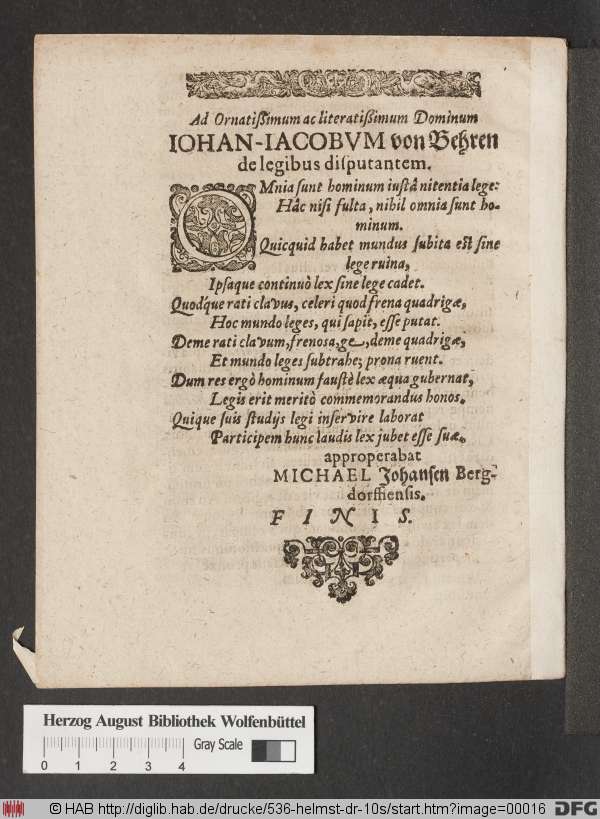 Ad Ornatißimum ac literatißimum Dominum
IOHAN-IACOBVM von Behren
de legibus disputantem.
OMnia sunt hominum iustâ nitentia lege:
Hâc nisi fulta, nihil omnia sunt ho-
minum.
Quicquid habet mundus subita est sine
lege ruina,
Ipsaque continuò lex sine lege cadet.
Quodque rati clavus, celeri quod frena quadrigæ,
Hoc mundo leges, qui sapit, esse putat.
Deme rati clavum, frenosa, ge, deme quadrigæ,
Et mundo leges subtrahe; prona ruent.
Dum res ergò hominum faustè lex æqua gubernat,
Legis erit meritò commemorandus honos.
Quique suis studijs legi inservire laborat
Participem hunc laudis lex jubet esse suæ.
approperabat
MICHAEL Johansen Berg-
dorffiensis.
FINIS.
Herzog August Bibliothek Wolfenbüttel
Gray Scale
0 1 2 3 4
© HAB http://diglib.hab.de/drucke/536-helmst-dr-10s/start.htm?image=00016
DFG